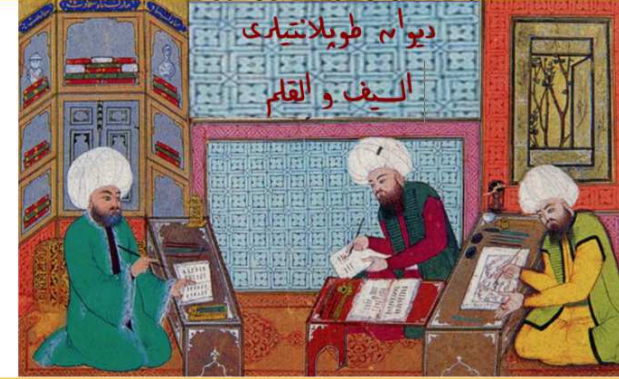 ديوان طوپلانتيلرى
السيف و القلم